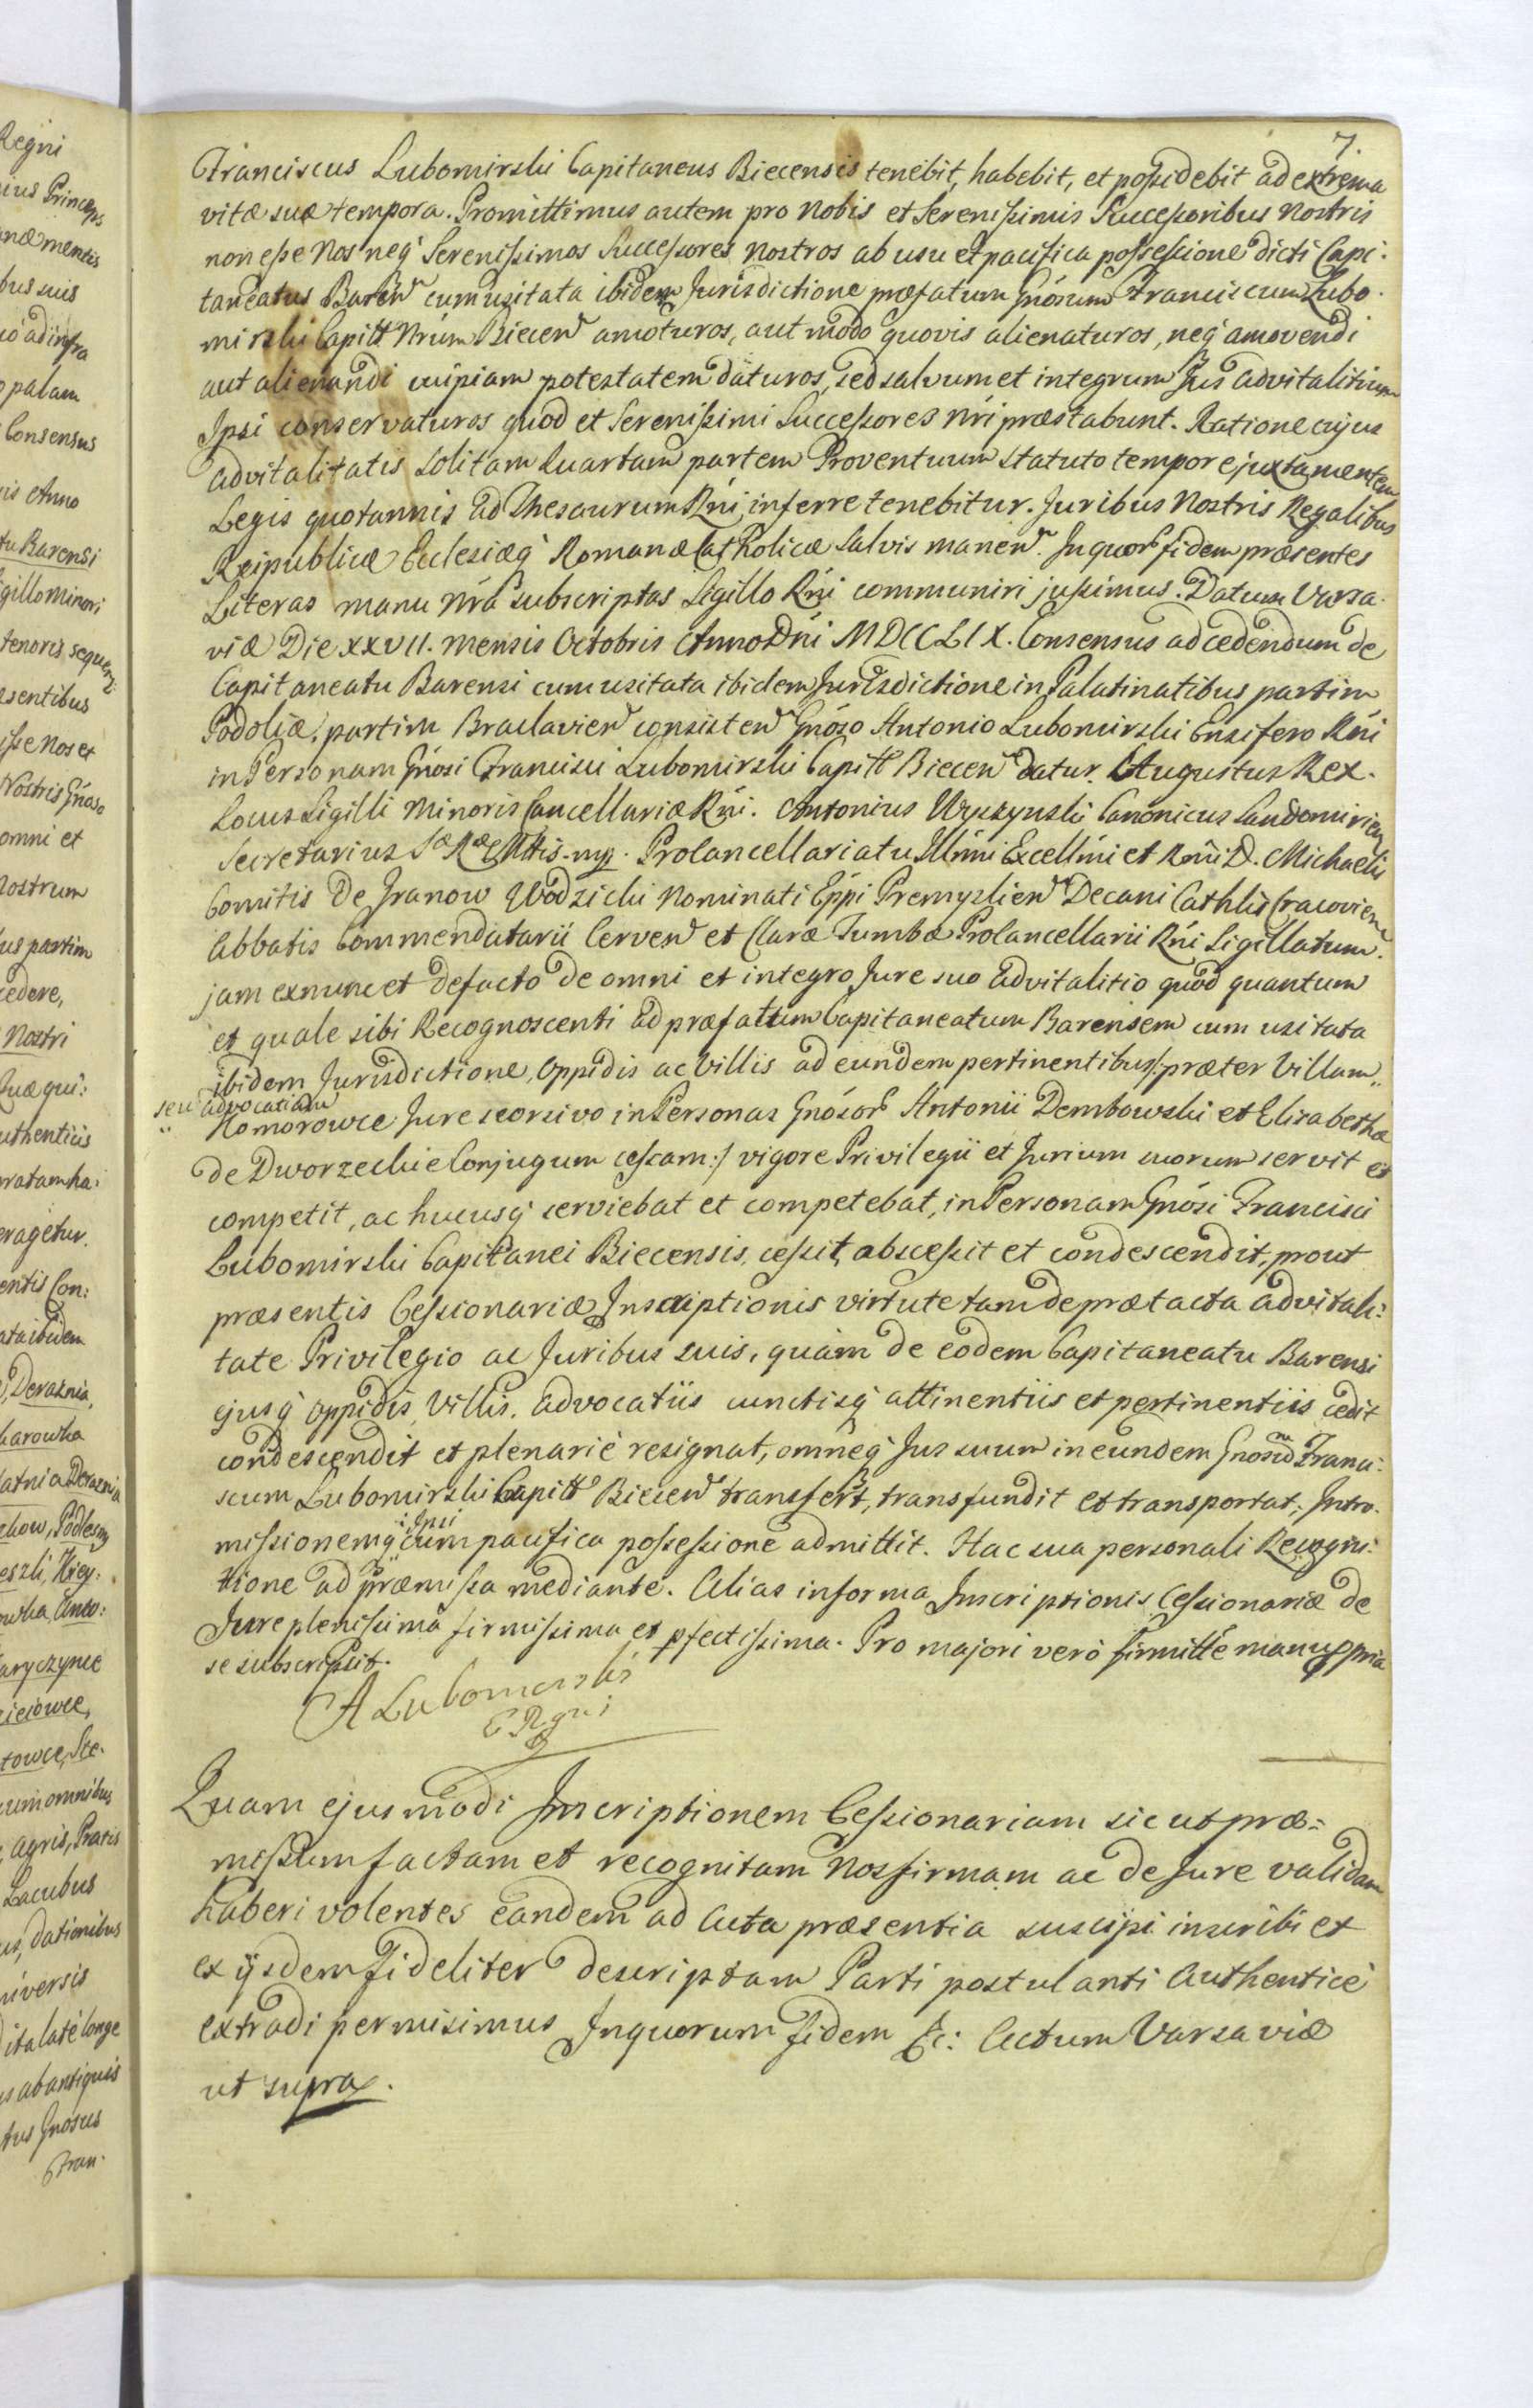 7.
Franciscus Lubomirski Capitaneus Biecensis tenebit, habebit, et possidebit ad extrema
vitæ suæ tempora. Promittimus autem pro Nobis et Serenissimis Successoribus Nostris
non esse Nos neq́ Serenissimos Successores Nostros ab usu et pacifica possessione dicti Capi:
taneatus Baren cum usitata ibidem Jurisdictione præfatum Gnósum Franciscum Lubo-
mirski Capitt Nrúm Biecen amoturos, aut modo quovis alienaturos, neq́ amovendi
aut alienandi cuipiam potestatem daturos, sed salvum et integrum Jus advitalitium
Ipsi conservaturos quod et Serenissimi Successores Nrí præstabunt. Ratione cujus
advitalitatis solitam Quartam partem Proventuum statuto tempore juxta mentem
Legis quotannis ad Thesaurum Rńi inferre tenebitur. Juribus Nostris Regalibus
Reipublicæ Ecclesiæq́ Romanæ Catholicæ salvis manen. In quor fidem præsentes
Literas manu Nrá subscriptas Sigillo Rńi communiri jussimus. Datum Varsa-
viæ Die XXVII. Mensis Octobris Anno Dńi MDCCLIX. Consensus ad cedendum de
Capitaneatu Barensi cum usitata ibidem Jurisdictione in Palatinatibus partim
Podoliæ, partim Braclavien consisten Gnóso Antonio Lubomirski Ensifero Rńi
in Personam Gnósi Francisci Lubomirski Capitt Biecen datur. Augustus Rex.
Locus Sigilli Minoris Cancellariæ Rńi. Antonius Wyczynski Canonicus Sandomirien
Secretarius Sæ Ræ Mttis. mp. Procancellariatu Illmi Excellmi et Rmi D. Michaelis
Comitis De Granow Wodzicki Nominati Eppi Premyslien Decani Cathlis Cracovien
Abbatis Commendatarii Cerven et Claræ Tumbæ Procancellarii Rńi Sigillatum.
jam exnunc et defacto de omni et integro Jure suo advitalitio quod quantum
et quale sibi Recognoscenti ad præfatum Capitaneatum Barensem cum usitata
ibidem Jurisdictione, Oppidis ac Villis ad eundem pertinentibus /:præter Villam
seu advocatiam
Komorowce Jure seorsivo in Personas Gnósor Antonii Dembowski et Elisabethæ
de Dworzeckie Conjugum cessam:/ vigore Privilegii et Jurium suorum servit et
competit, ac hucusq́ serviebat et competebat, in Personam Gnósi Francisci
Lubomirski Capitanei Biecensis, cessit, abscessit et condescendit, prout
præsentis Cessionariæ Inscriptionis virtute tam de prætacta advitali:
tate Privilegio ac Juribus suis, quàm de eodem Capitaneatu Barensi
ejusq́ Oppidis, Villis, advocatiis cunctisq́ attinentiis et pertinentiis cedit
condescendit et plenariè resignat, omneq́ Jus suum in eundem Gnosum Franci:
scum Lubomirski Capitt Biecen transfert, transfundit et transportat, Intro-
missionemq́ Ipsi cum pacifica possessione admittit. Hac sua personali Recogni:
tione ad præmissa mediante. Alias in forma Inscriptionis Cessionariæ de
Jure plenissima firmissima et pfectissima. Pro majori verò firmitte manu ppria
se subscripsit.
A Lubomirski
E Regni
Quam ejusmodi Inscriptionem Cessionariam sic ut præ=
missum factam et recognitam Nos firmam ac de Jure validam
haberi volentes eandem ad Acta præsentia suscipi inscribi et
ex ijsdem fideliter descriptam Parti postulanti Authenticè
extradi permisimus In quorum fidem &c: Actum Varsaviæ
ut supra.